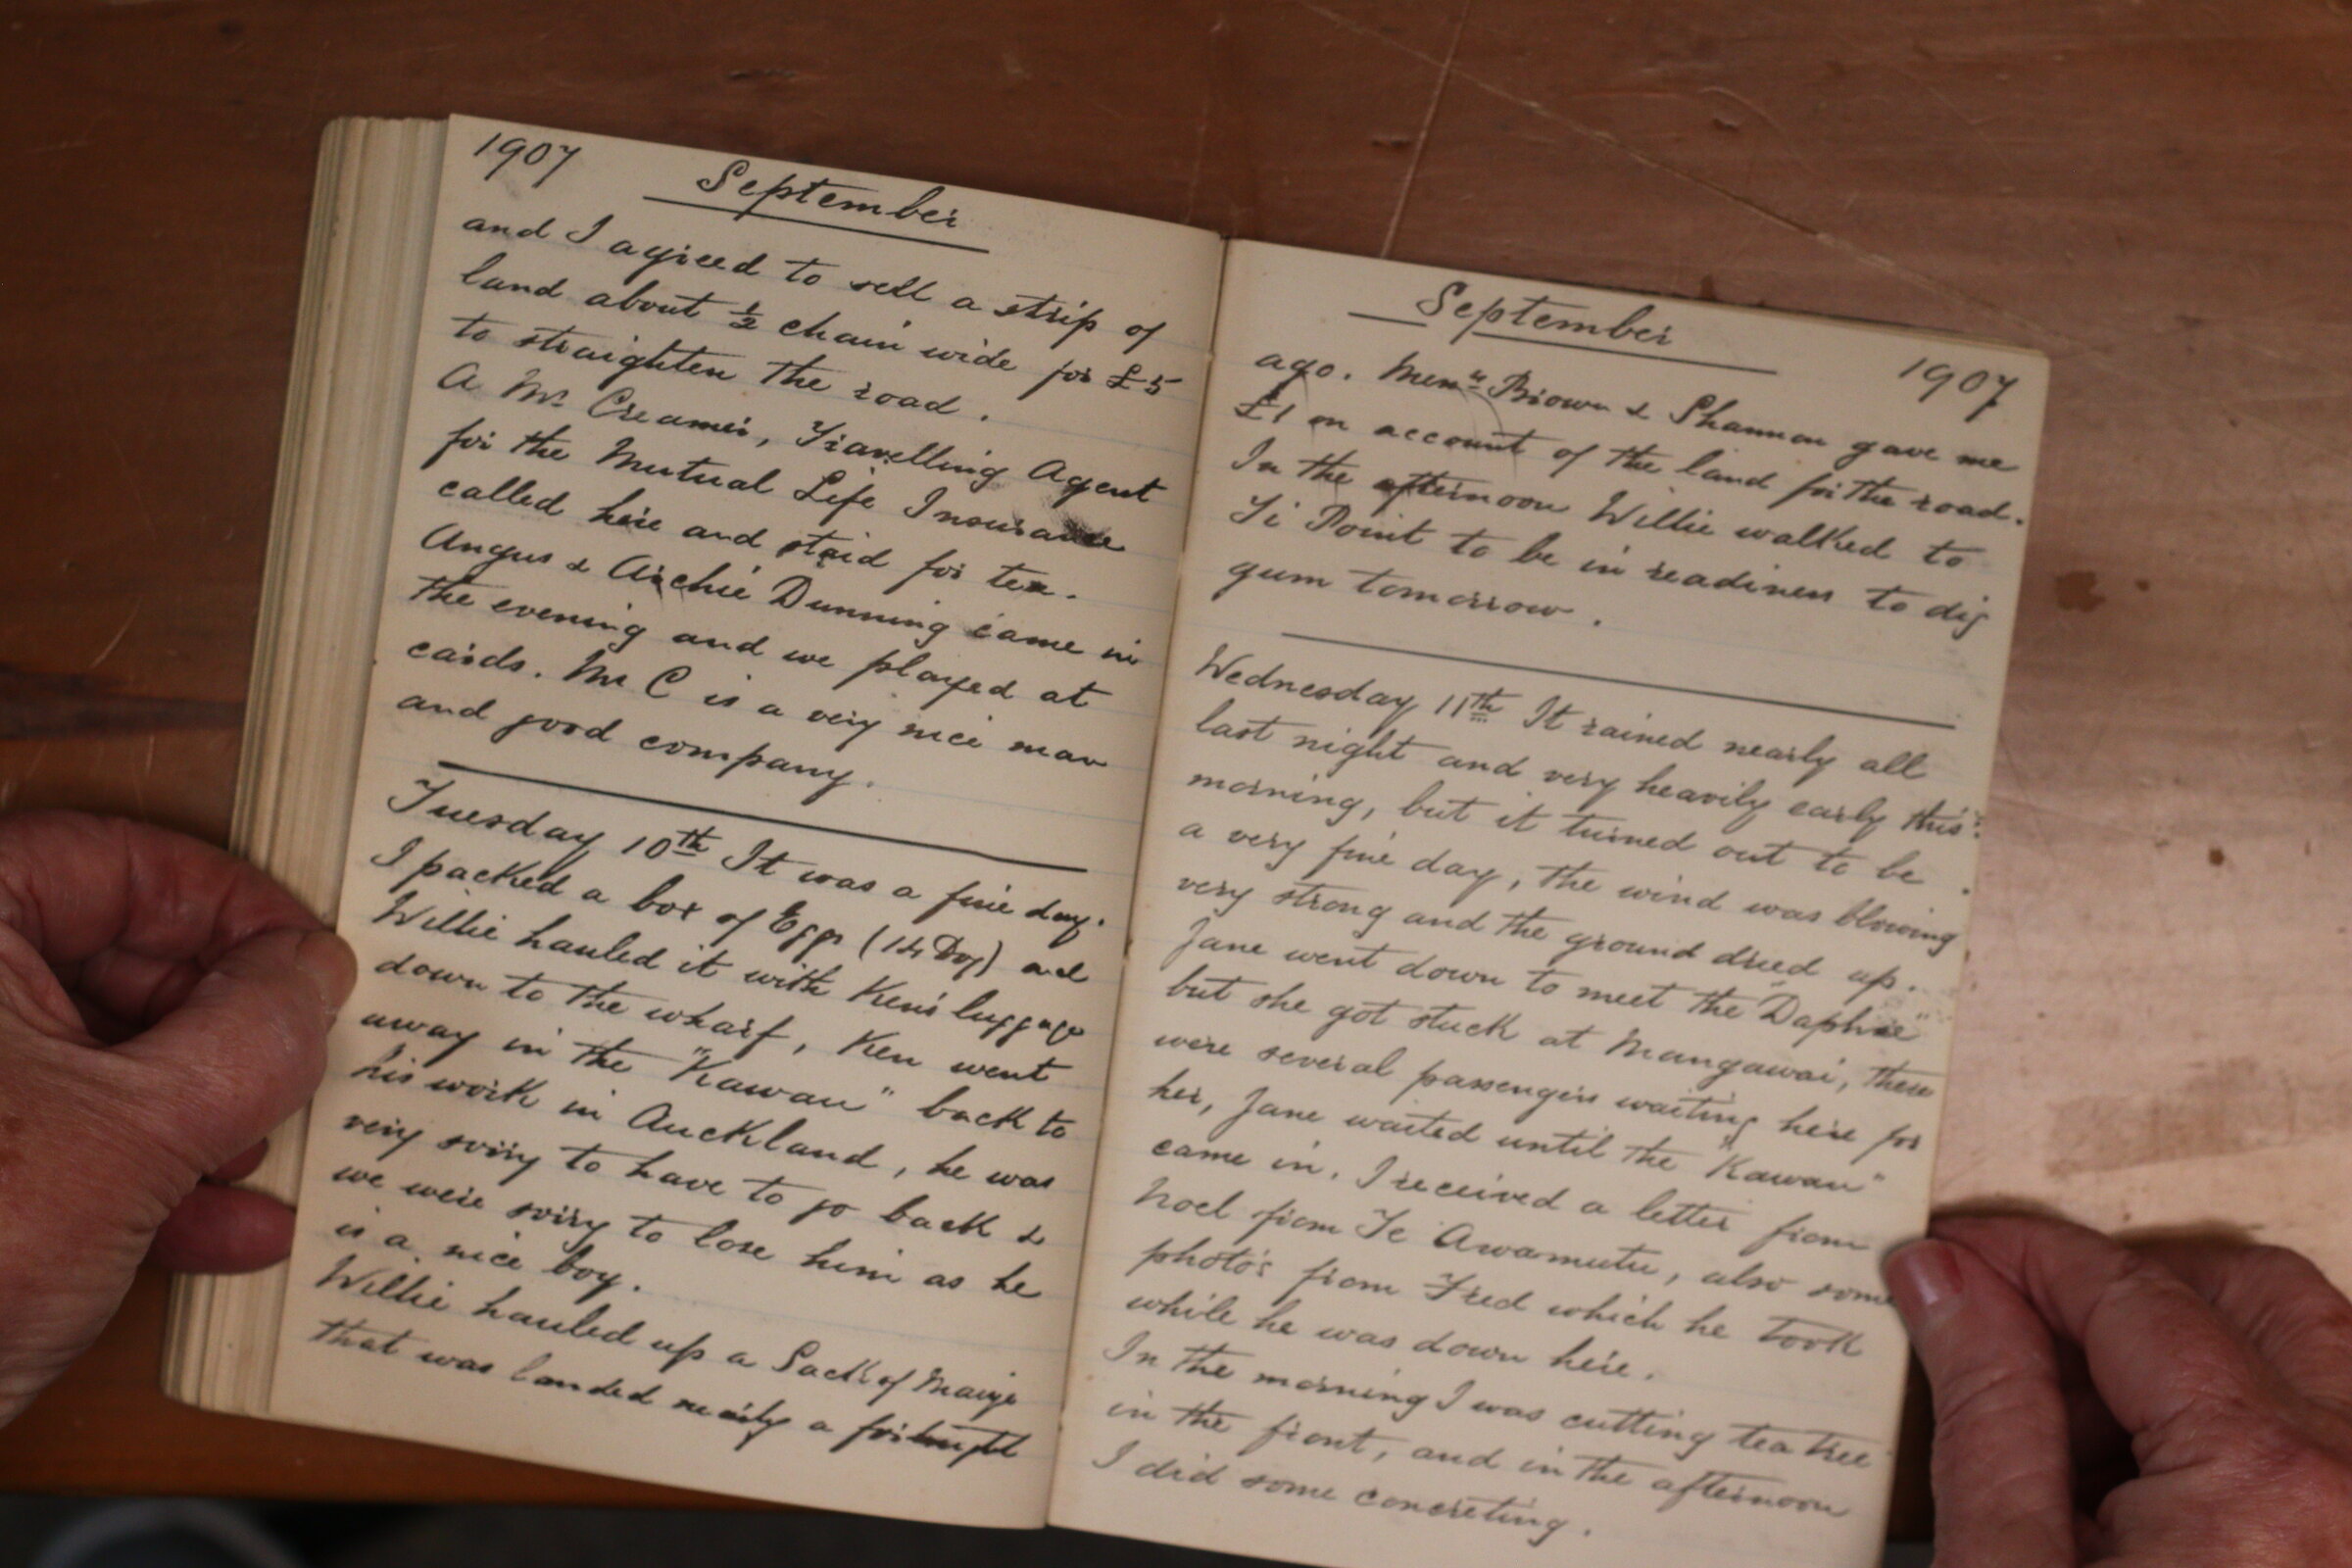 1907
September
and I agreed to sell a strip of
land about ½ chain wide for £5
to straighten the road.
A Mr Creamer, Travelling Agent
for the Mutual Life Insurance
called here and staid for tea.
Angus & Archie Dunning came in
the evening and we played at
cards. Mr C is a very nice man
and good company.
Tuesday 10th It was a fine day.
I packed a box of Eggs (14 Doz) and
Willie hauled it with Ken's luggage
down to the wharf, Ken went
away in the "Kawau" back to
his work in Auckland, he was
very sorry to have to go back &
we were sorry to lose him as he
is a nice boy.
Willie hauled up a Sack of Maize
that was landed nearly a fortnight
September
1907
ago. Messrs Brown & Shannon gave me
£1 on account of the land for the road.
In the afternoon Willie walked to
Ti Point to be in readiness to dig
gum tomorrow.
Wednesday 11th It rained nearly all
last night and very heavily early this
morning, but it turned out to be
a very fine day, the wind was blowing
very strong and the ground dried up.
Jane went down to meet the "Daphne"
but she got stuck at Mangawai, there
were several passengers waiting here for
her, Jane waited until the "Kawau"
came in. I received a letter from
Noel from Te Awamutu, also some
photo's from Fred which he took
while he was down here.
In the morning I was cutting tea tree
in the front, and in the afternoon
I did some concreting.